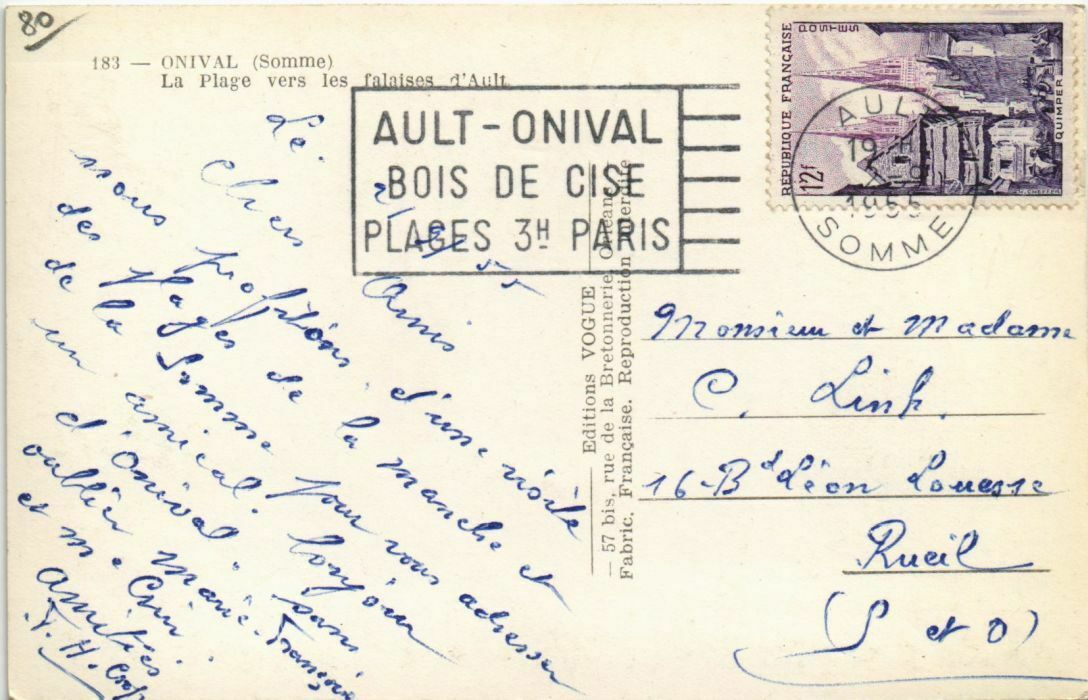 80
183 — ONIVAL (Somme)
La Plage vers les falaises d'Ault
AULT - ONIVAL
BOIS DE CISE
PLAGES 3H PARIS
RÉPUBLIQUE FRANÇAISE
POSTES
12f
QUIMPER
AULT
19 H
1955
SOMME
Le
55
Chers Amis
nous profitons d'une visite
des plages de la manche et
de la Somme pour vous adresser
un amical bonjour
d'Onival. sans
oublier Marie-Françoise
et me
Amitiés.
Editions VOGUE
— 57 bis, rue de la Bretonnerie, Orléans
Fabric. Française. Reproduction interdite
Monsieur et Madame
C. Link.
16 Bd Léon
Rueil
(S et O)